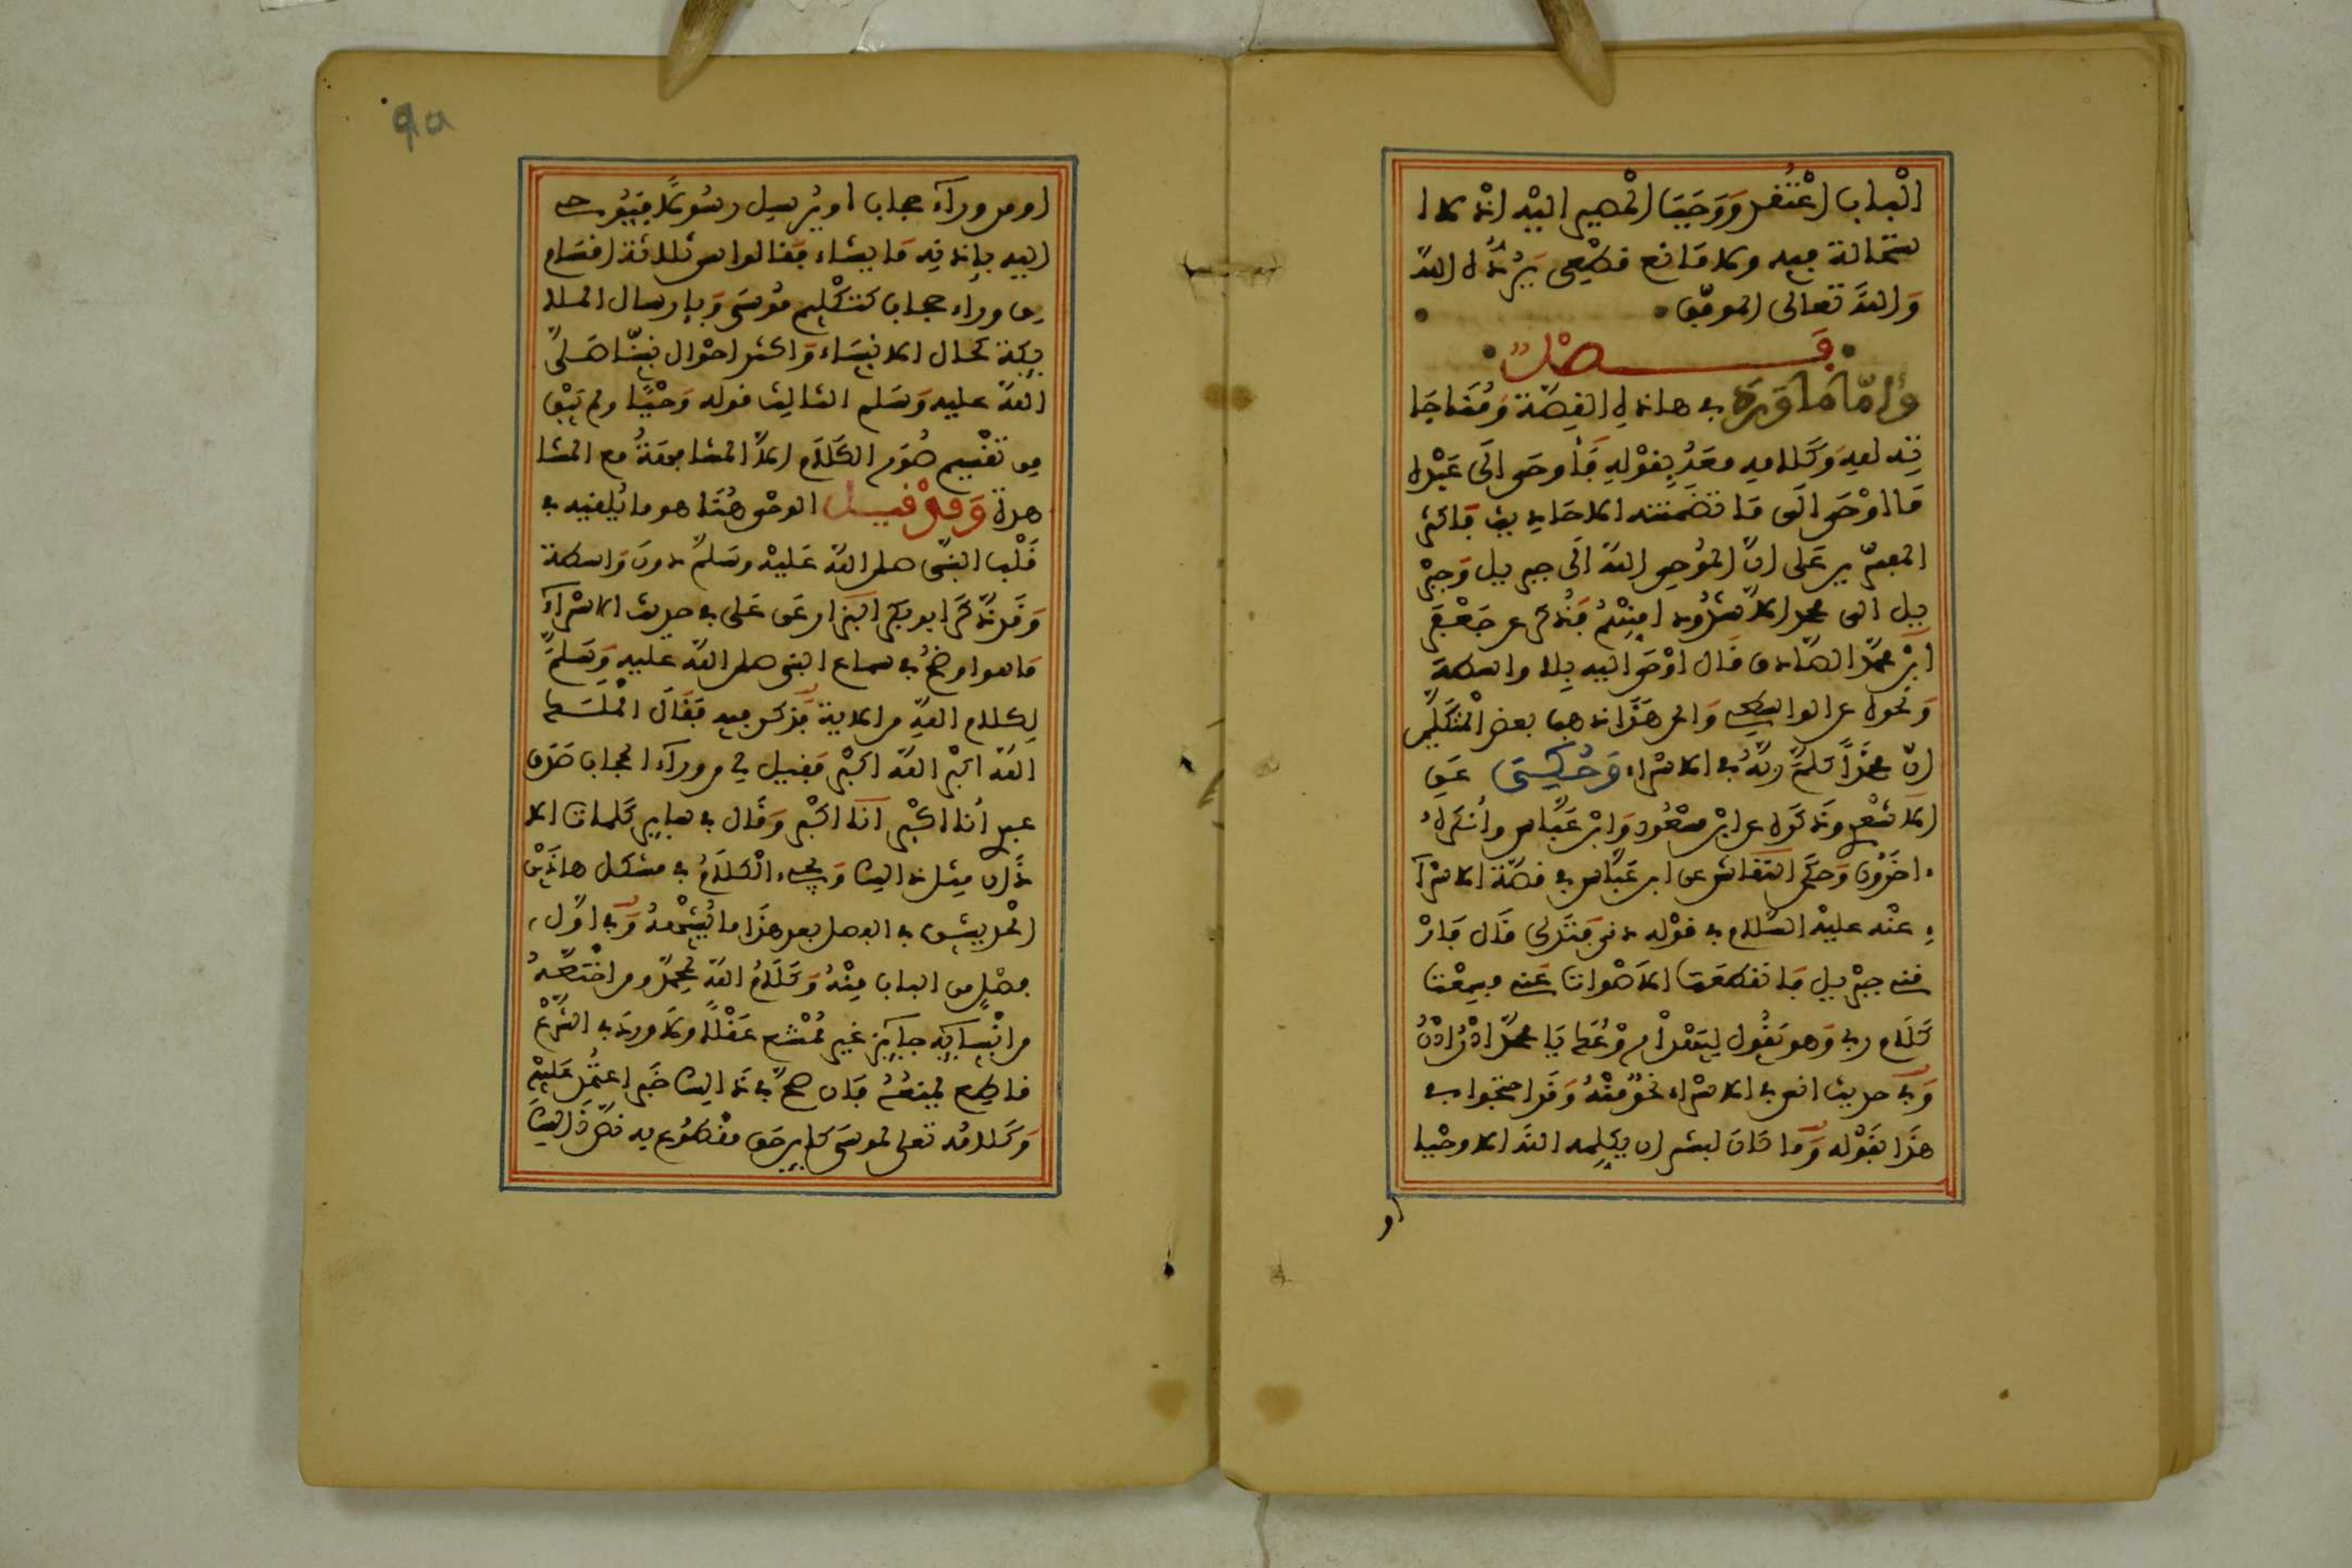 الباب اعتقد ووجب المصير اليه اذ لا ا
ستحالة فيه ولا مانع قطعي يرده الله
والله تعالى الموفق
فصل
واما ما ورد في هاذه القصة ومناجا
ته لله وكلامه معه بقوله فأوحى الى عبده
ما اوحى الى ما تضمنته الاحاديث فاكثر
المفسرين على ان الموحي الله الى جبريل وجبر
يل الى محمد الا شذوذا منهم فذكر عن جعفر
ابن محمد الصادق قال اوحى اليه بلا واسطة
ونحوه عن الواسطي والى هذا ذهب بعض المتكلمين
ان محمدا كلم ربه في الاسراء وحكي عن
الاشعري وذكوه عن ابن مسعود وابن عباس وانكره
ءاخرون وحكى النقاش عن ابن عباس في قصة الاسرا
ء عنه عليه السلام في قوله دنى فتدلى قال فار
قني جبريل فانقطعت الاصوات عني فسمعت
كلام ربي وهو يقول ليهدأ روعك يا محمد ادن ادن
وفي حديث انس في الاسراء نحو منه وقد احتجوا في
هذا بقوله وما كان لبشر ان يكلمه الله الا وحيا
او
90
او من وراء حجاب او يرسل رسولا فيوحي
اليه بإذنه ما يشاء فقالوا هي ثلاثة اقسام
من وراء حجاب كتكليم موسى وبإرسال الملا
يكة كحال الانبياء واكثر احوال نبينا صلى
الله عليه وسلم الثالث قوله وحيا ولم يبق
من تقسيم صور الكلام الا المشافهة مع المشا
هدة وقد قيل الوحي هنا هو ما يلقيه في
قلب النبي صلى الله عليه وسلم دون واسطة
وقد ذكر ابو بكر البزار عن علي في حديث الاسراء
ما هو اوضح في سماع النبي صلى الله عليه وسلم
لكلام الله من الاية فذكر فيه فقال الملك
الله اكبر الله اكبر فقيل لي من وراء الحجاب صدق
عبدي أنا اكبر انا اكبر وقال في ساير كلمات الا
ذان مثل ذالك ويجيء الكلام في مشكل هاذين
الحديثين في الفصل بعد هذا ما يشبهه وفي اول
فصل من الباب منه وكلام الله لمحمد ومن اختصه
من انبيايه جايز غير ممتنع عقلا ولا ورد في الشرع
قاطع يمنعه فان صح في ذالك خبر اعتمد عليه
وكلامه تعلى لموسى كاين حق مقطوع به نص ذالك